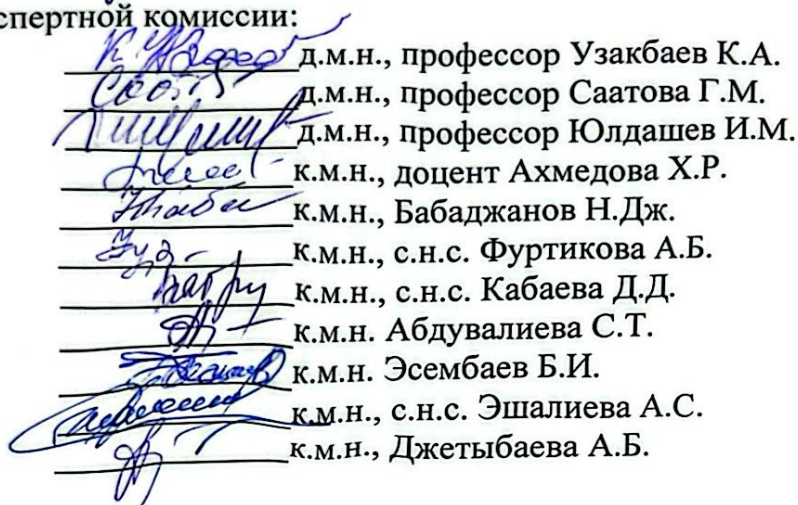 спертной комиссии:
д.м.н., профессор Узакбаев К.А.
д.м.н., профессор Саатова Г.М.
д.м.н., профессор Юлдашев И.М.
к.м.н., доцент Ахмедова Х.Р.
к.м.н., Бабаджанов Н.Дж.
к.м.н., с.н.с. Фуртикова А.Б.
к.м.н., с.н.с. Кабаева Д.Д.
к.м.н. Абдувалиева С.Т.
к.м.н. Эсембаев Б.И.
к.м.н., с.н.с. Эшалиева А.С.
к.м.н., Джетыбаева А.Б.